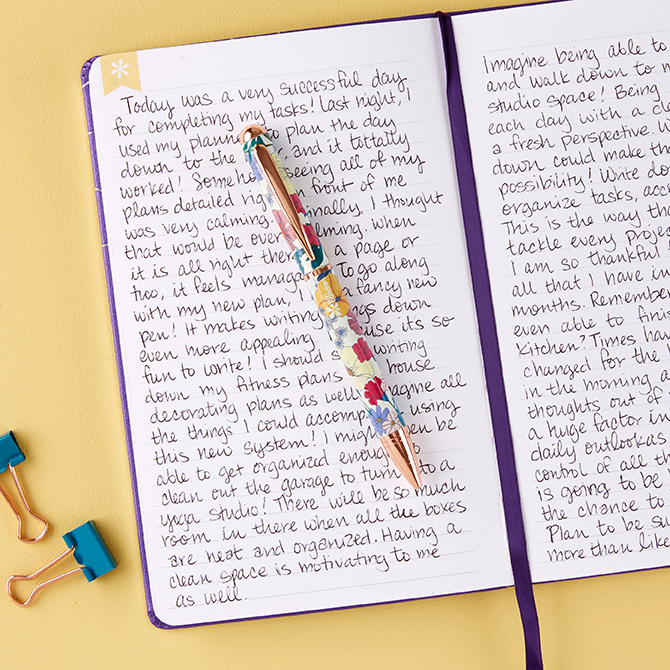 Today was a very successful day
for completing my tasks! Last night, I
used my planner to plan the day
down to the and it totally
worked! Somehow seeing all of my
plans detailed right in front of me
was very calming. Normally, I thought
that would be overwhelming. when
it is all right there on a page or
two, it feels manageable. To go along
with my new plan, I a fancy new
pen! It makes writing things down
even more appealing because its so
fun to write! I should start writing
down my fitness plans house
decorating plans as well. Imagine all
the things I could accomplish using
this new system! I might even be
able to get organized enough to
clean out the garage to turn into a
yoga studio! There will be so much
room in there when all the boxes
are neat and organized. Having a
clean space is motivating to me
as well.
Imagine being able to
and walk down to m
studio space! Being
each day with a d
a fresh perspective. W
down could make tha
possibility! Write do
organize tasks, acc
This is the way th
tackle every projec
I am so thankful
all that I have in
months. Remember
even able to finish
kitchen? Times hav
changed for the
in the morning a
thoughts out of
a huge factor in
daily outlook as
control of all th
is going to be
the chance to
Plan to be su
more than like